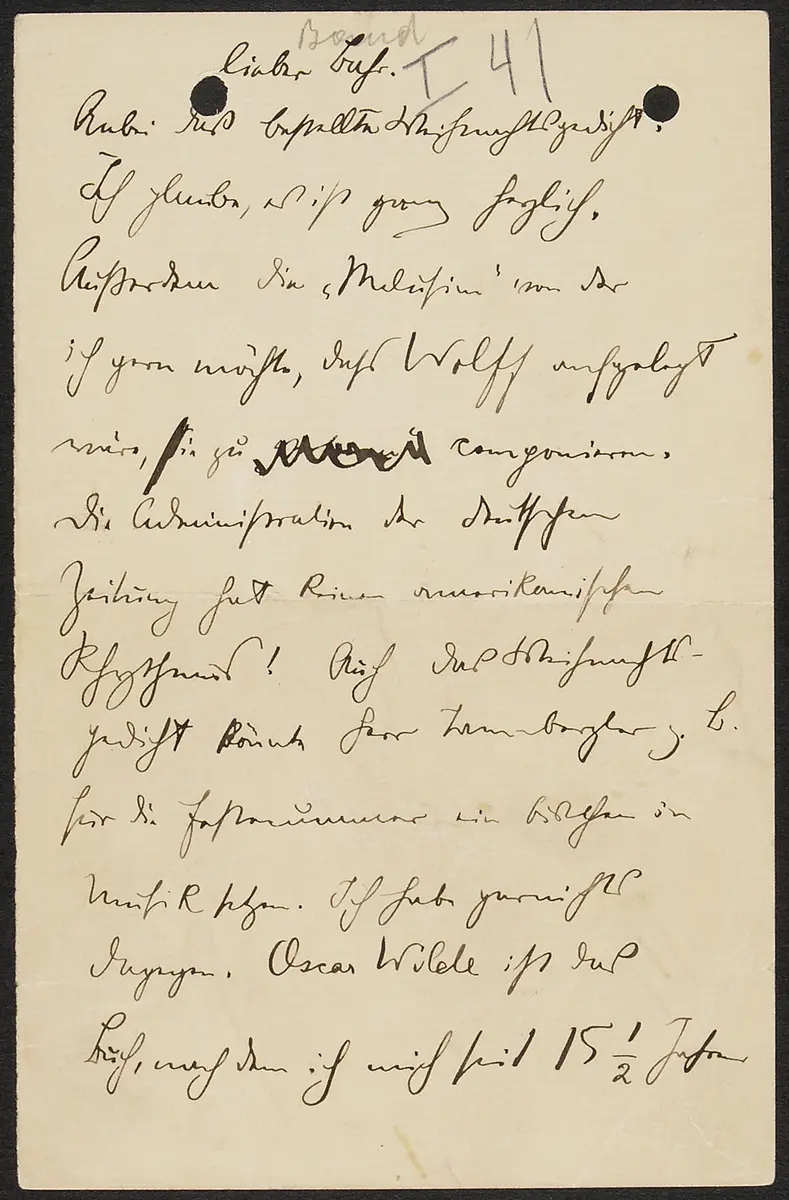 Band
I 41
lieber Bahr.
Anbei das bestellte Weihnachtsgedicht.
Ich glaube, es ist ganz herzlich.
Außerdem die „Melusine“ von der
ich gern möchte, dass Wolff aufgelegt
wäre, sie zu componieren.
Die Administration der deutschen
Zeitung hat keinen amerikanischen
Rhythmus! Auch das Weihnachts-
gedicht könnte Herr z. B.
für die Festnummer ein bischen in
Musik setzen. Ich habe garnichts
dagegen. Oscar Wilde ist das
Buch, nach dem ich mich seit 15 1/2 Jahren